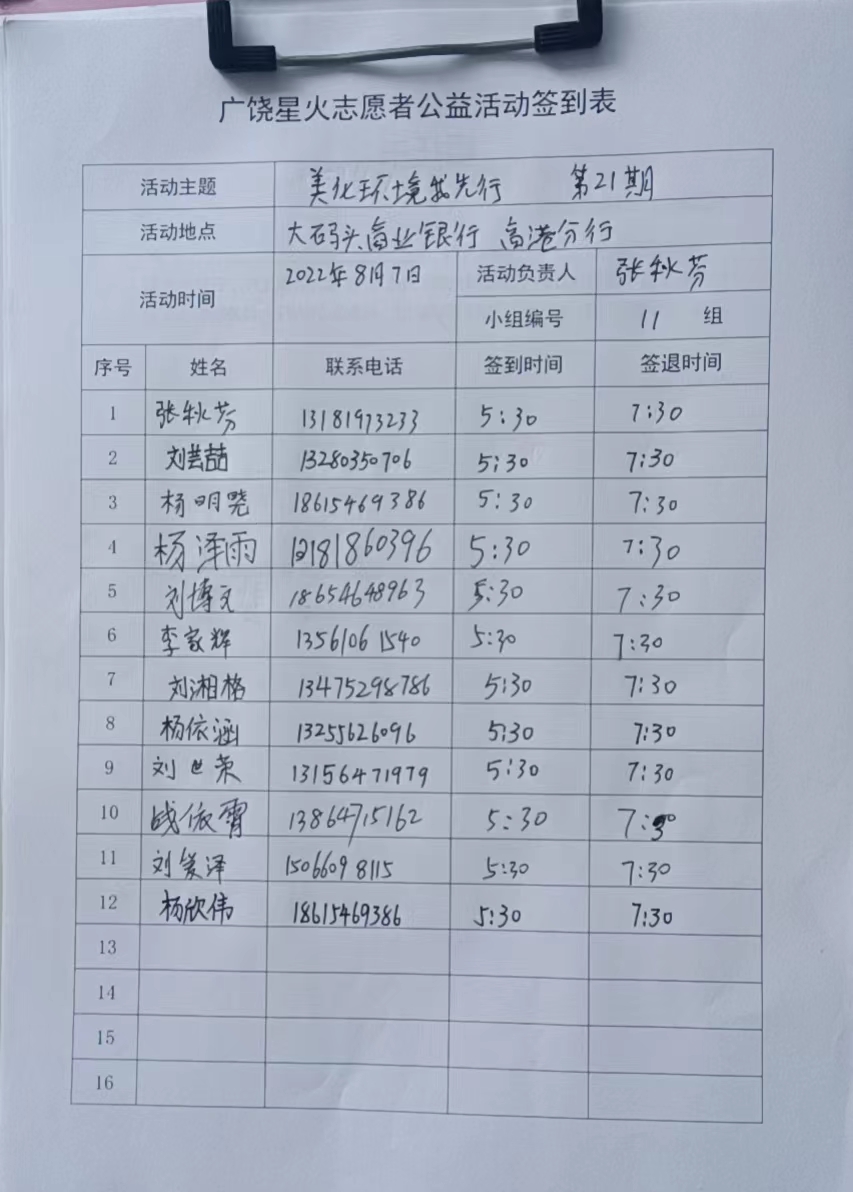 广饶星火志愿者公益活动签到表
活动主题 美化环境我先行 第21期
活动地点 大码头商业银行 高港分行
活动时间 2022年8月7日 活动负责人 张秋芬
小组编号 11 组
序号 姓名 联系电话 签到时间 签退时间
1 张秋芬 13181973233 5:30 7:30
2 刘芸喆 13280350706 5:30 7:30
3 杨明晓 18615469386 5:30 7:30
4 杨泽雨 13181860396 5:30 7:30
5 刘博文 18654648963 5:30 7:30
6 李家辉 13561061540 5:30 7:30
7 刘湘格 13475298786 5:30 7:30
8 杨依涵 13255626096 5:30 7:30
9 刘世荣 13156471979 5:30 7:30
10 战依霄 13864715162 5:30 7:30
11 刘 泽 15066098115 5:30 7:30
12 杨欣伟 18615469386 5:30 7:30
13
14
15
16